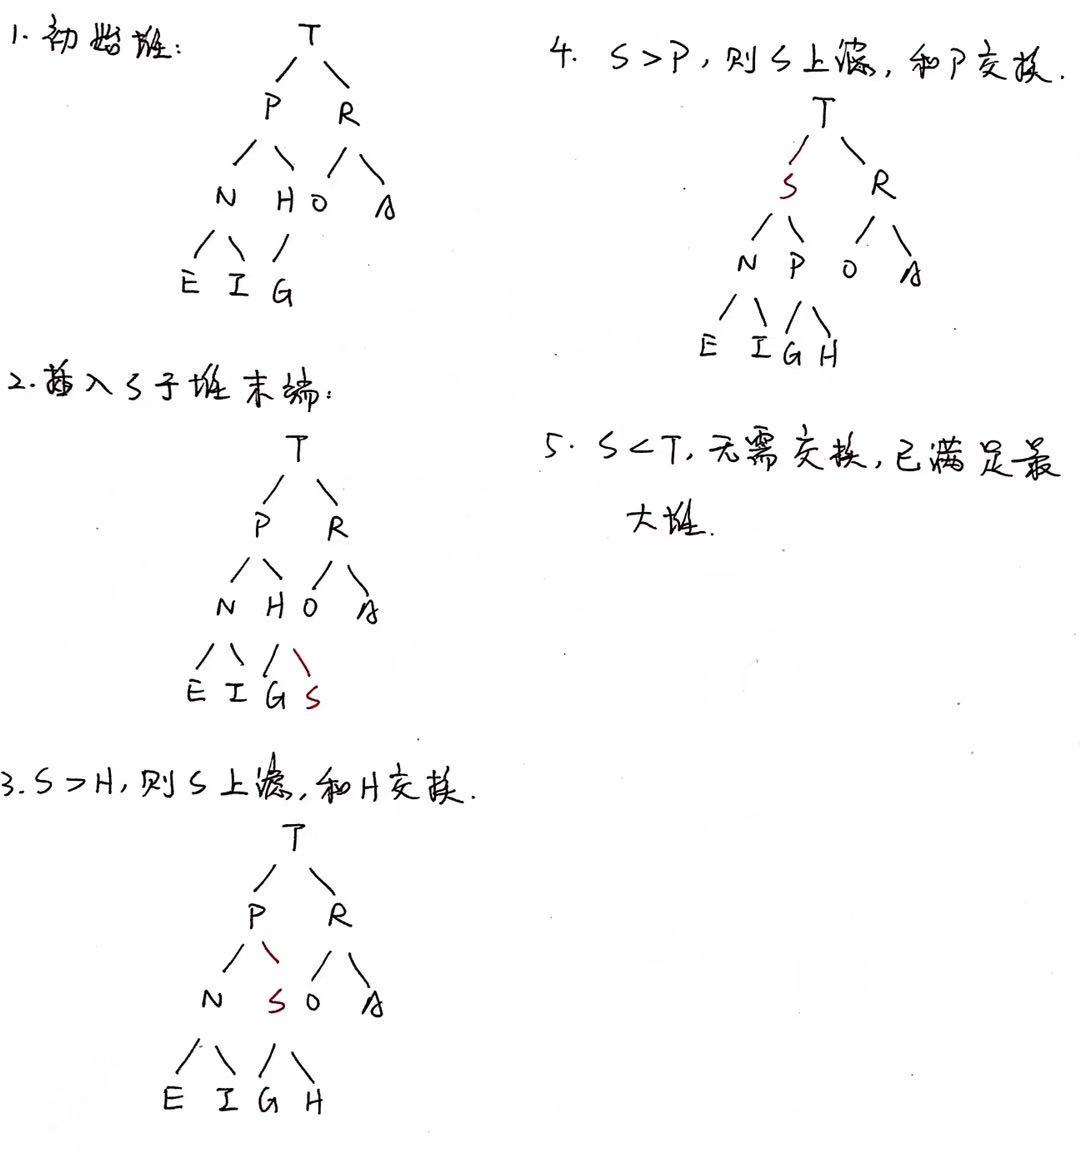 1. 初始堆:
T
P R
N H O A
E I G
2. 插入S于堆末端:
T
P R
N H O A
E I G S
3. S>H, 则S上滤, 和H交换.
T
P R
N S O A
E I G H
4. S>P, 则S上滤, 和P交换.
T
S R
N P O A
E I G H
5. S<T, 无需交换, 已满足最
大堆.